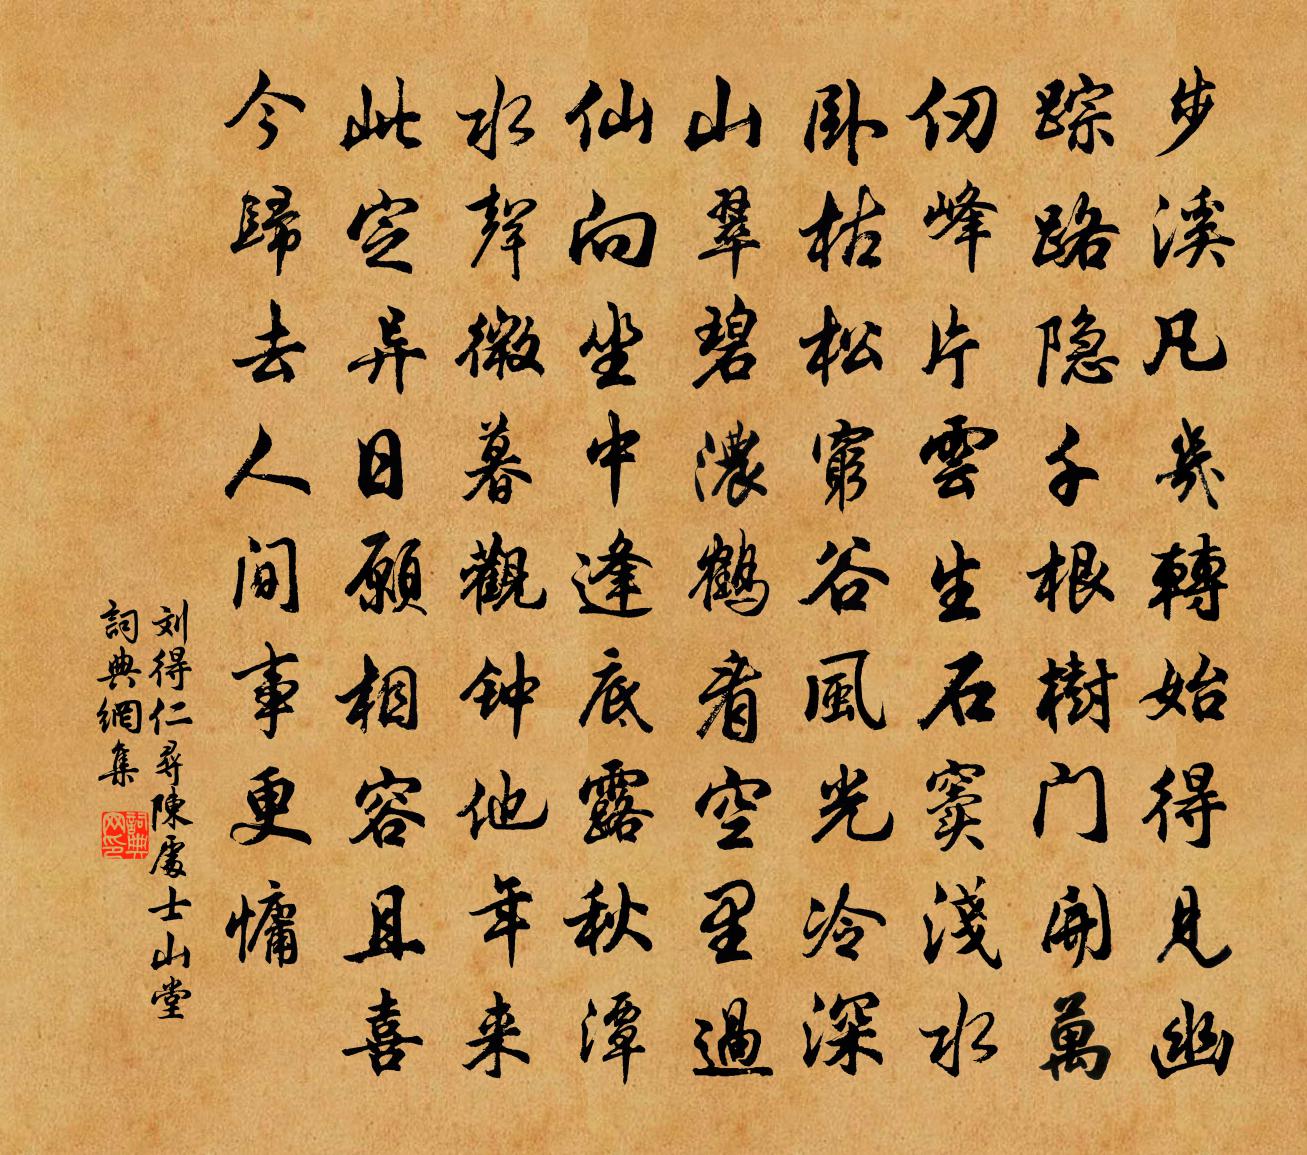 步溪凡幾轉始得見幽
踪路隐千根樹门開萬
仞峰片雲生石竇淺水
卧枯松窮谷風光冷深
山翠碧濃鶴看空里過
仙向坐中逢底露秋潭
水聲微暮觀钟他年来
此定异日願相容且喜
今歸去人间事更慵
刘得仁尋陳處士山堂
詞典網集
詞典网印